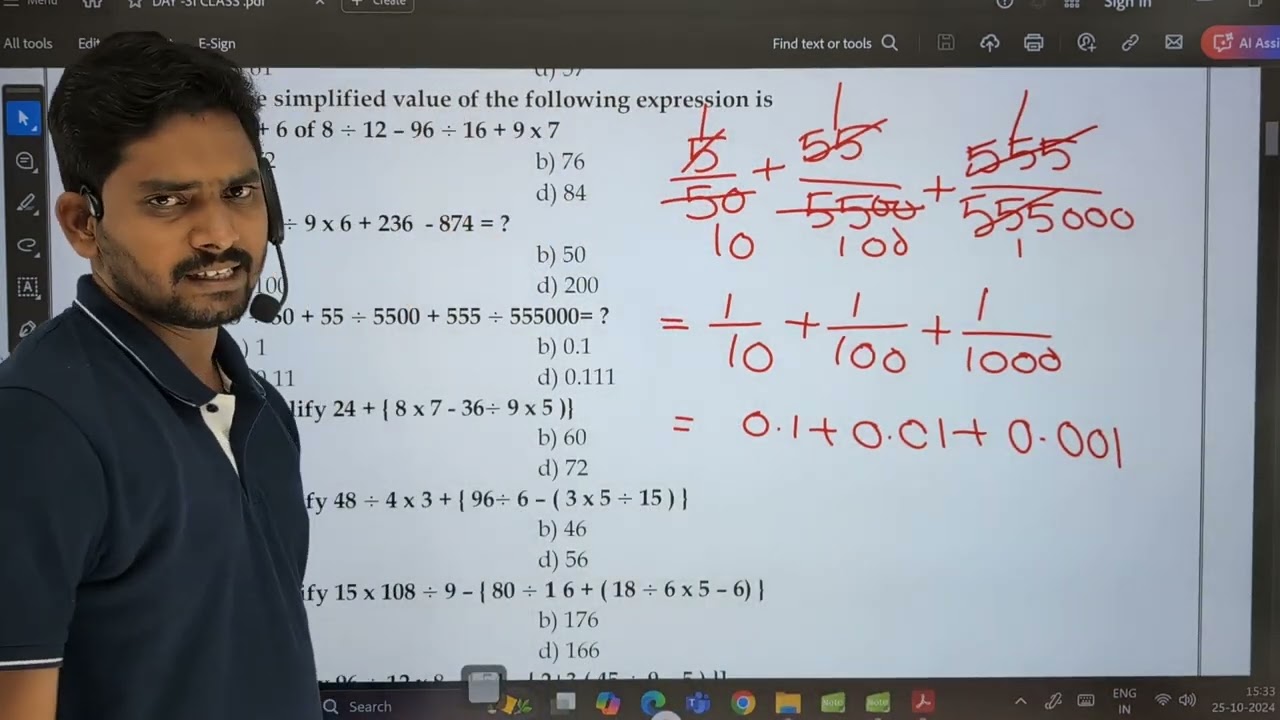 Menu
DAY -31 CLASS .pdf
Create
Sign in
All tools
E-Sign
Find text or tools
AI Assi
simplified value of the following expression is
+ 6 of 8 ÷ 12 – 96 ÷ 16 + 9 x 7
b) 76
d) 84
÷ 9 x 6 + 236 - 874 = ?
b) 50
d) 200
+ 55 ÷ 5500 + 555 ÷ 555000= ?
) 1
b) 0.1
d) 0.111
24 + { 8 x 7 - 36÷ 9 x 5 )}
b) 60
d) 72
48 ÷ 4 x 3 + { 96÷ 6 – ( 3 x 5 ÷ 15 ) }
b) 46
d) 56
15 x 108 ÷ 9 – { 80 ÷ 1 6 + ( 18 ÷ 6 x 5 – 6) }
b) 176
d) 166
1 1 1
5 + 55 + 555
50 5500 555000
10 100 1
= 1 + 1 + 1
10 100 1000
= 0.1 + 0.01 + 0.001
Search
ENG
IN
15:33
25-10-2024